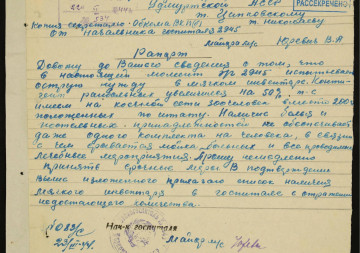 Удмуртской АССР
т. Цитковскому
РАССЕКРЕЧЕНО
Копия секретарю Обкома ВКП(б) т. Николаеву
От начальника госпиталя 2945
Майора м/с Юревич В.А
Рапорт
Довожу до Вашего сведения о том, что
в настоящий момент ЭГ 2945 испытывает
острую нужду в мягком инвентаре. Конти-
гент раненных увеличился на 50%, т.е
имеем на коечной сети 300 человек вместо 200
положенных по штату. Наличие белья и
постельных принадлежностей не обеспечивает
даже одного комплекта на человека, в связи
с чем срывается мойка больных и все проводимые
лечебные мероприятия. Прошу немедленно
принять срочные меры. В подтверждение
выше изложенного прилагаю список наличия
мягкого инвентаря в госпитале с отражением
недостающего количества.
Нач-к госпиталя
Майор м/с
1083/с
23/III-44г.